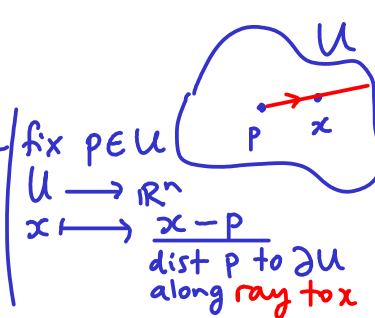 U
p
x
fix p ∈ U
U ⟶ ℝⁿ
x ⟼ x − p
dist p to ∂U
along ray to x